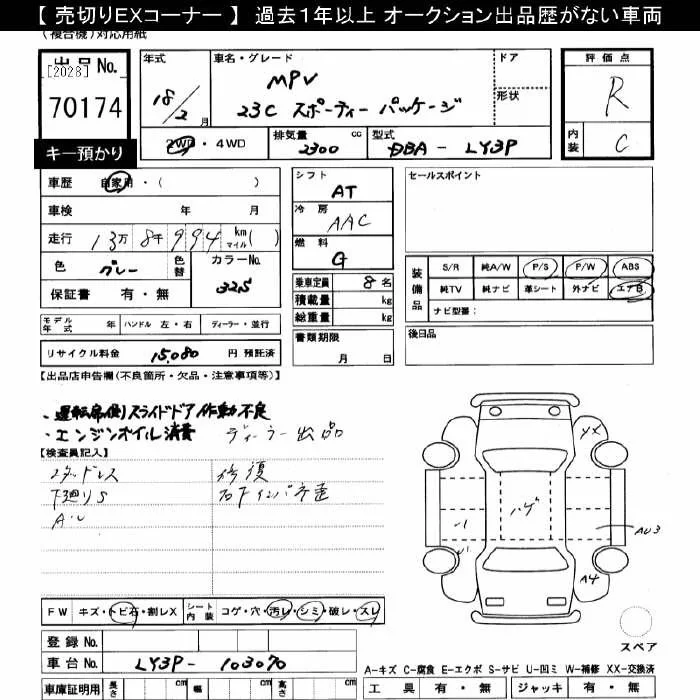 【 売切りEXコーナー 】 過去1年以上 オークション出品歴がない車両
(複合機)対応用紙
出品No.
[2028]
70174
キー預かり
年式
18/2月
車名・グレード
MPV
23C スポーティー パッケージ
ドア
形状
評価点
R
内装
C
2WD・4WD
排気量
2300 cc
型式
DBA - LY3P
車歴 自家用・( )
車検 年 月
走行 13万 8千 994 km マイル( )
色 グレー
色替
カラーNo.
32S
保証書 有・無
シフト
AT
冷房
AAC
燃料
G
乗車定員 8 名
積載量 kg
総重量 kg
書類期限
月 日
セールスポイント
装備品
S/R 純A/W P/S P/W ABS
純TV 純ナビ 革シート 外ナビ エアB
ナビ型番:
後日品
モデル年式 年 ハンドル 左・右 ディーラー・並行
リサイクル料金 15,080 円 預託済
【出品店申告欄(不良箇所・欠品・注意事項等)】
・運転席側スライドドア作動不良
・エンジンオイル消費 ディーラー出品
【検査員記入】
スタッドレス 修復
下廻りS 右下インパネ歪
A・U
XX
ハゲ
U1
AU3
A4
FW キズ・トビ石・割レX
シート内装 コゲ・穴・汚レ・シミ・破レ・スレ
登録No.
車台No. LY3P - 103070
車庫証明用 長さ cm 幅 cm 高さ cm
スペア
A-キズ C-腐食 E-エクボ S-サビ U-凹ミ W-補修 XX-交換済
工具 有・無 ジャッキ 有・無